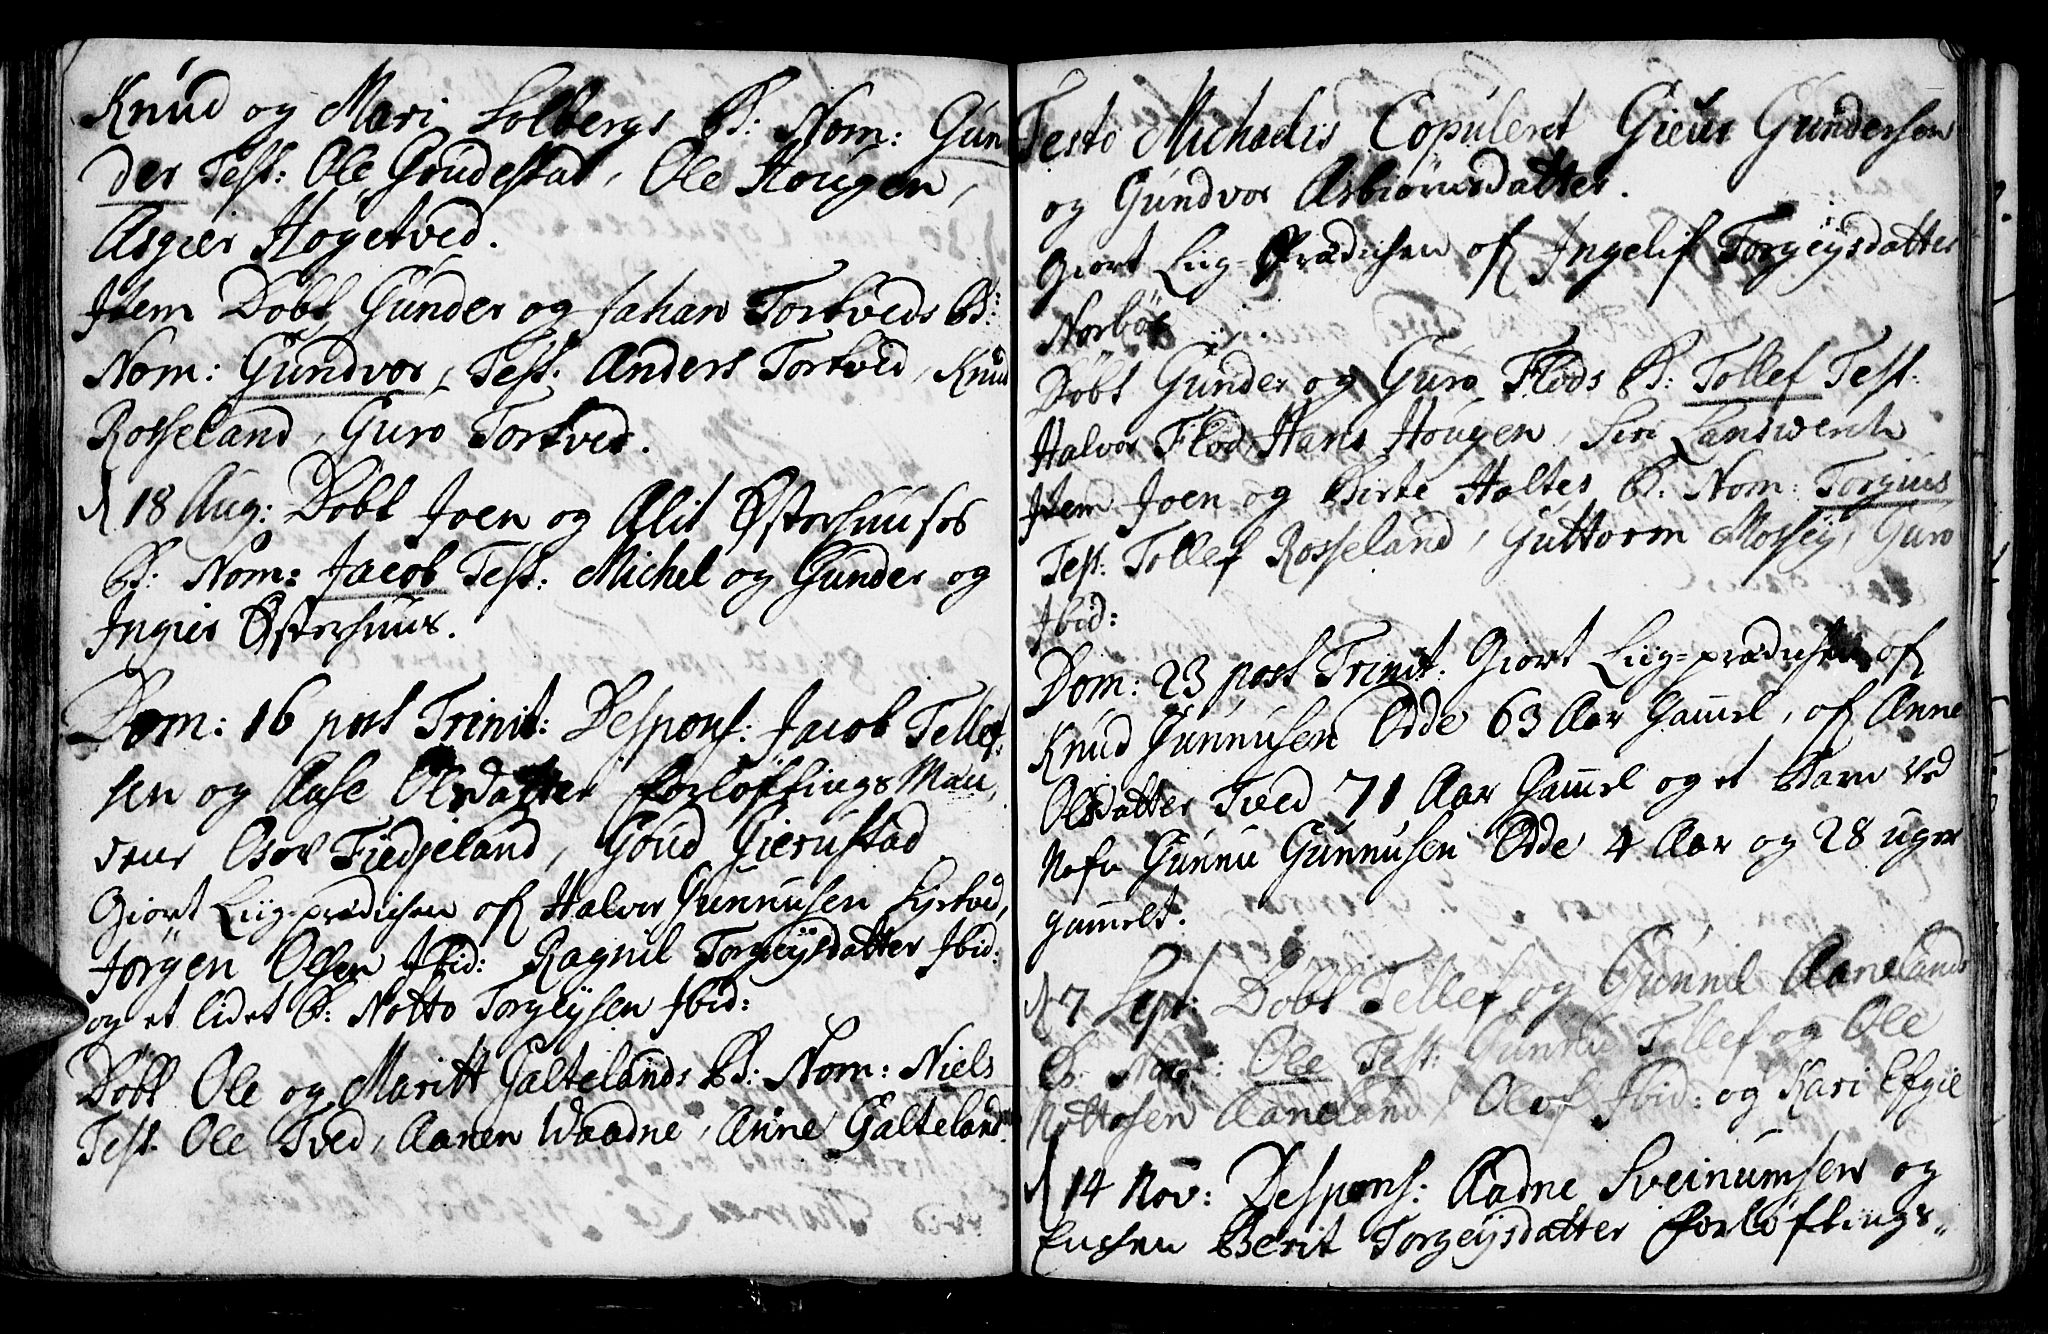 Knud og Mari Solbergs B: Nom: Gun
der Test: Ole Grudestad, Ole Hougen,
Asgier Høgetved.
Item Døbt Gunder og Johan Tortveds B:
Nom: Gundvor, Test: Anders Tortved, Knud
Rosseland, Guro Tortved.
d 18 Aug: Døbt Joen og Alit Østerhuuses
B: Nom: Jacob Test: Michel og Gunder og
Ingier Østerhuus.
Dom: 16 post Trinit: Despons: Jacob Tellef-
sen og Aase Olsdatter Forløftings Mæn,
dene Osov Fiedjeland, Goud Gierustad
Giort Liig-prædichen of Halvor Gunnusen Syrtved,
Jørgen Olsen Ibid: Ragnil Torgeÿsdatter Ibid:
og et lidet B: Notto Torgeÿsen Ibid:
Døbt Ole og Maritt Galtelands B: Nom: Niels
Test: Ole Tved, Aanen Waadne, Anne Galteland.
Festo Michaelis Copuleret Gieur Gundersen
og Gundvor Asbiørnsdatter.
Giort Liig-Prædichen of Ingelif Torgeÿsdatter
Norbøe
Døbt Gunder og Guro Flods B: Tollef Test:
Halvor Flod Hans Hougen, Siri Landswerch
Item Joen og Birte Holtes B. Nom: Torgius
Test: Tollef Rosseland, Guttorm Mossey, Guro
Ibid:
Dom: 23 post Trinit: Giort Liig-prædichen of
Knud Gunnusen Odde 63 Aar Gammel, of Anne
Olsdatter Tved 71 Aar Gammel og et Barn ved
Nafn Gunnu Gunnusen Odde 4 Aar og 28 uger
gammelt.
d 7 Sept: Døbt Tellef og Gunnil Aanelands
B. Nom: Ole Test: Gunnu Tollef og Ole
Nottosen Aaneland, Olof Ibid: og Kari Efgie
d 14 Nov: Despons: Aadne Sveinumsen og
Enchen Berit Torgeÿsdatter Forløftings-